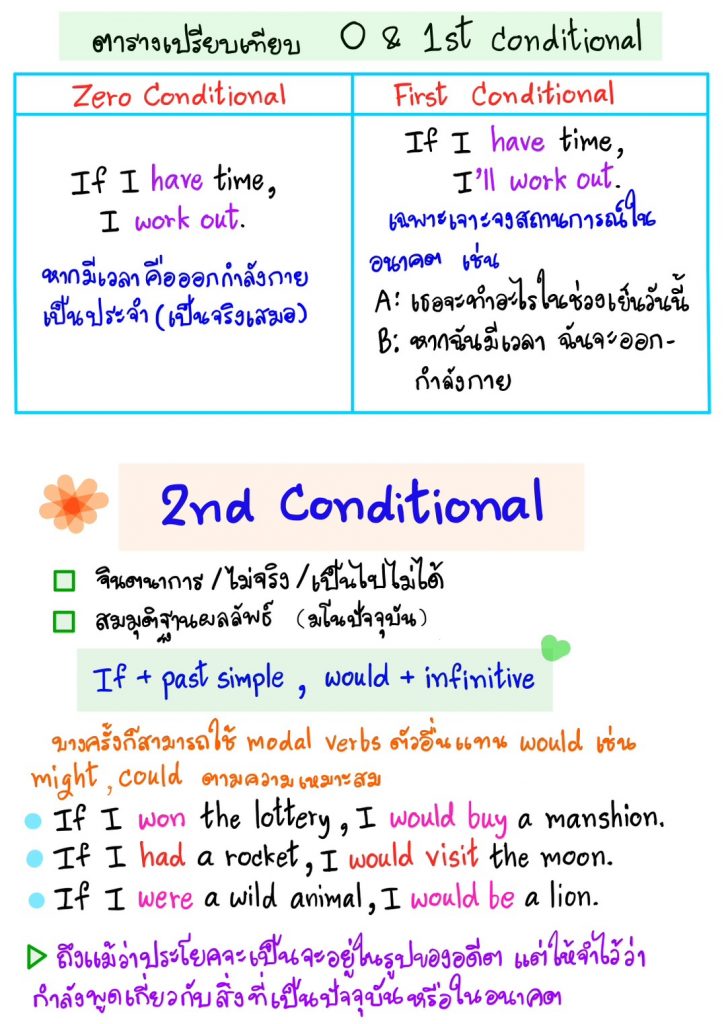 ตารางเปรียบเทียบ 0 & 1st conditional
Zero Conditional
If I have time,
I work out.
หากมีเวลา คือออกกำลังกาย
เป็นประจำ (เป็นจริงเสมอ)
First Conditional
If I have time,
I'll work out.
เฉพาะเจาะจงสถานการณ์ใน
อนาคต เช่น
A: เธอจะทำอะไรในช่วงเย็นวันนี้
B: หากฉันมีเวลา ฉันจะออก-
กำลังกาย
2nd Conditional
จินตนาการ / ไม่จริง / เป็นไปไม่ได้
สมมุติฐานผลลัพธ์ (มโนปัจจุบัน)
If + past simple , would + infinitive
บางครั้งก็สามารถใช้ modal verbs ตัวอื่นแทน would เช่น
might , could ตามความเหมาะสม
If I won the lottery , I would buy a manshion.
If I had a rocket , I would visit the moon.
If I were a wild animal , I would be a lion.
ถึงแม้ว่าประโยคจะเป็นจะอยู่ในรูปของอดีต แต่ให้จำไว้ว่า
กำลังพูดเกี่ยวกับสิ่งที่เป็นปัจจุบันหรือในอนาคต